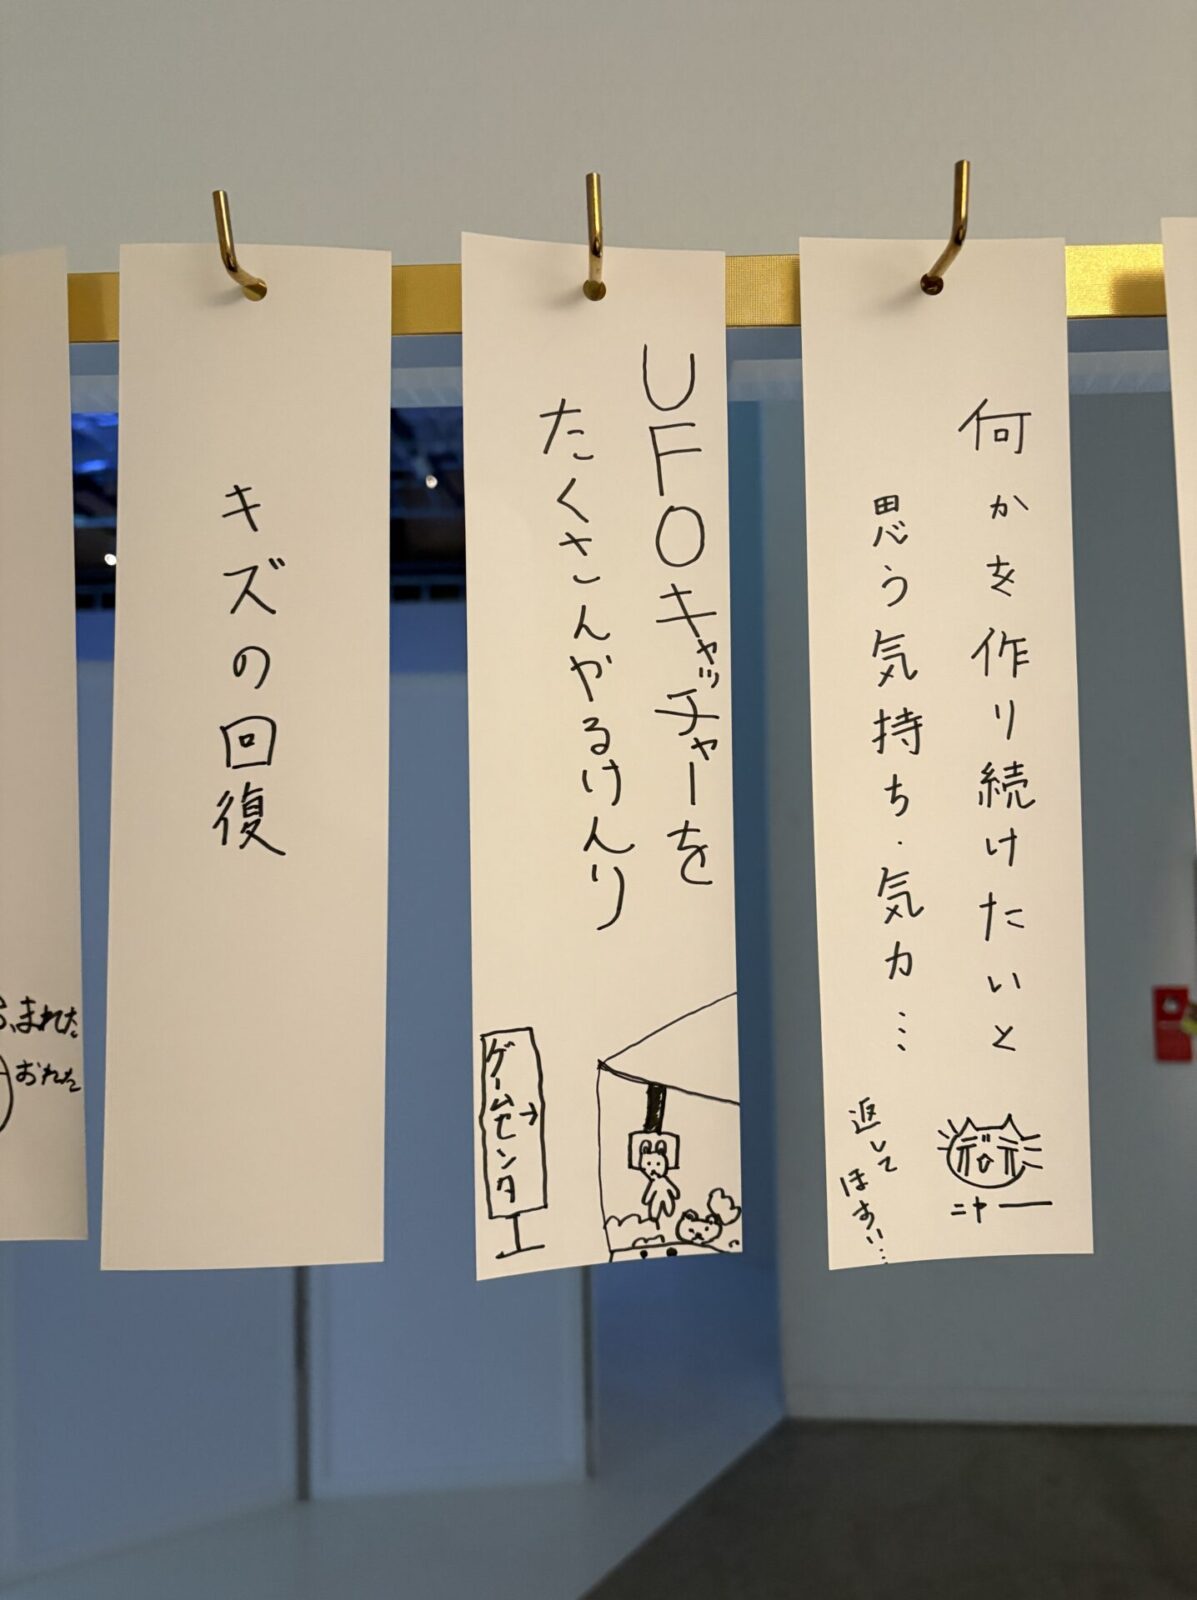 何かを作り続けたいと
思う気持ち・気力…
ニャー
返して
ほすい…
UFOキャッチャーを
たくさんやるけんり
ゲームセンタ→
キズの回復
まれた
おれた